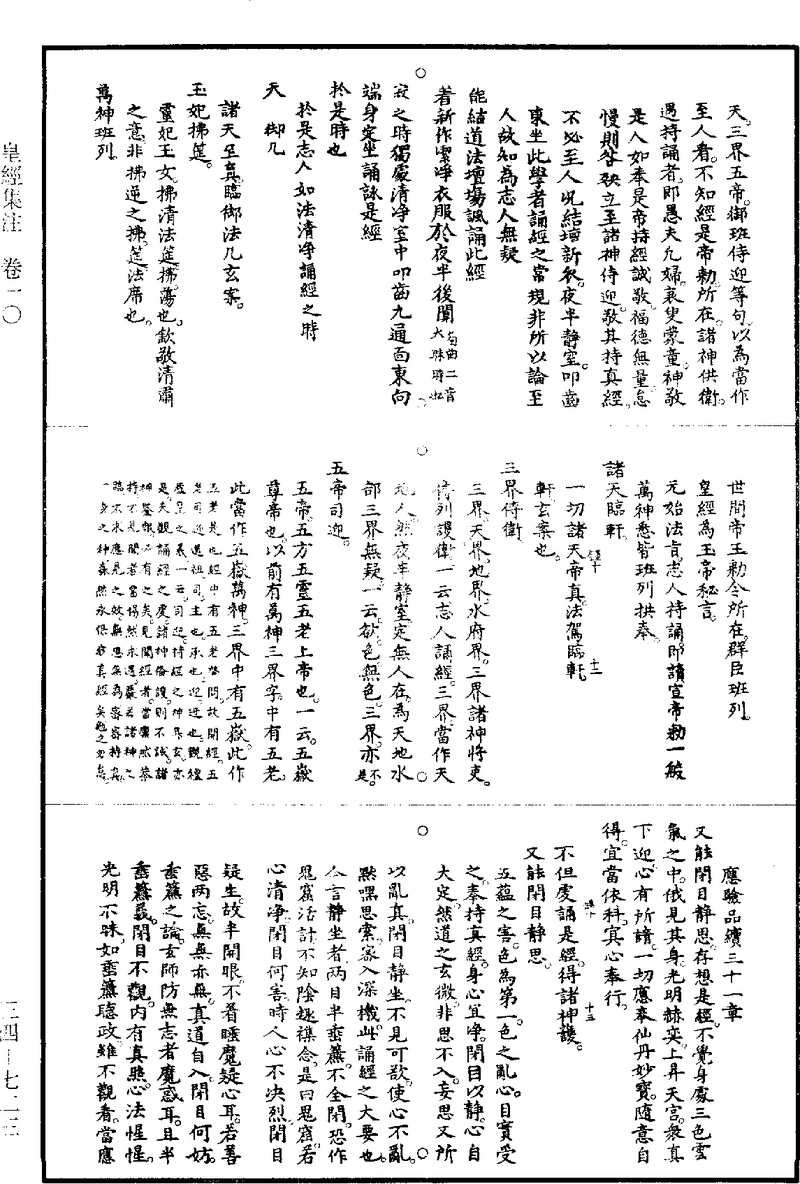 天。三界五帝。御班侍迎等句。以為當作
至人看。不知經是帝勅。所在。諸神供衛。
遇持誦者。即愚夫凡婦。衰叟蒙童。神敬
是人。如奉是帝。持經誠敬。福德無量。怠
慢則咎殃立至。諸神侍迎。敬其持真經。
不必至人。况結壇新衣。夜半静室。叩齒
東坐。此學者誦經之常規。非所以論至
人。故知為志人無疑。
能結道法壇場諷誦此經
着新作潔凈衣服於夜半後聞
寂之時獨處清凈室中叩齒九通面東向
端身定坐誦詠是經
於是時也
於是志人。如法清凈誦經之時
天御几
諸天至真。臨御法几玄案。
玉妃拂筵。
靈妃玉女。拂清法筵。拂。蕩也。欽敬清肅
之意。非拂逆之拂。筵。法席也。
萬神班列。
世間帝王。勅令所在。群臣班列。
皇經為玉帝秘言。
元始法旨。志人持誦。即讀宣帝勅一般
萬神悉皆班列拱奉。
諸天臨軒。
一切諸天帝真。法駕臨軒
軒玄案也。
三界侍衛。
三界。天界。地界。水府界。三界諸神將吏。
侍列護衛。一云。志人誦經。三界。當作天
地人。然夜半静室。定無人在。為天地水
部三界無疑。一云。欲色無色三界。亦不是。
五帝司迎。
五帝。五方五靈五老上帝也。一云。五嶽
尊帝也。以前有萬神三界字。中有五老。
此當作五嶽。萬神。三界中有五嶽。此作
應驗品續三十一章
又能閉目静思。存想是經。不覺身處三色雲
氣之中。俄見其身。光明赫奕。上昇天宮。衆真
下迎。心有所請。一切應奉。仙丹妙寶。隨意自
得。宜當依科。寘心奉行。
不但虔誦是經。得諸神護。
又能閉目静思。
五藴之害。色為第一。色之亂心。目實受
之。奉持真經。身心宜凈。閉目以静。心自
大定。然道之玄微。非思不入。妄思又所
以亂真。閉目静坐。不見可欲。使心不亂。
默嘿思索。家入深機。此誦經之大要也。
今言静坐者。兩目半垂簾。不全閉。恐作
鬼窟活計。不知陰趣襍念。是曰鬼窟。若
心清凈。閉目何害。時人心不决烈。閉目
疑生。故半開眼。不着睡魔疑心耳。若善
惡兩忘。無無亦無。真道自入。閉目何妨。
垂簾之論。玄師防無志者魔惑耳。且半
垂簾最。閉目不觀。内有真照。心法惺惺。
光明不昧。如垂簾聽政。雖不觀看。當應
皇經集注　卷一〇
三四—七二三